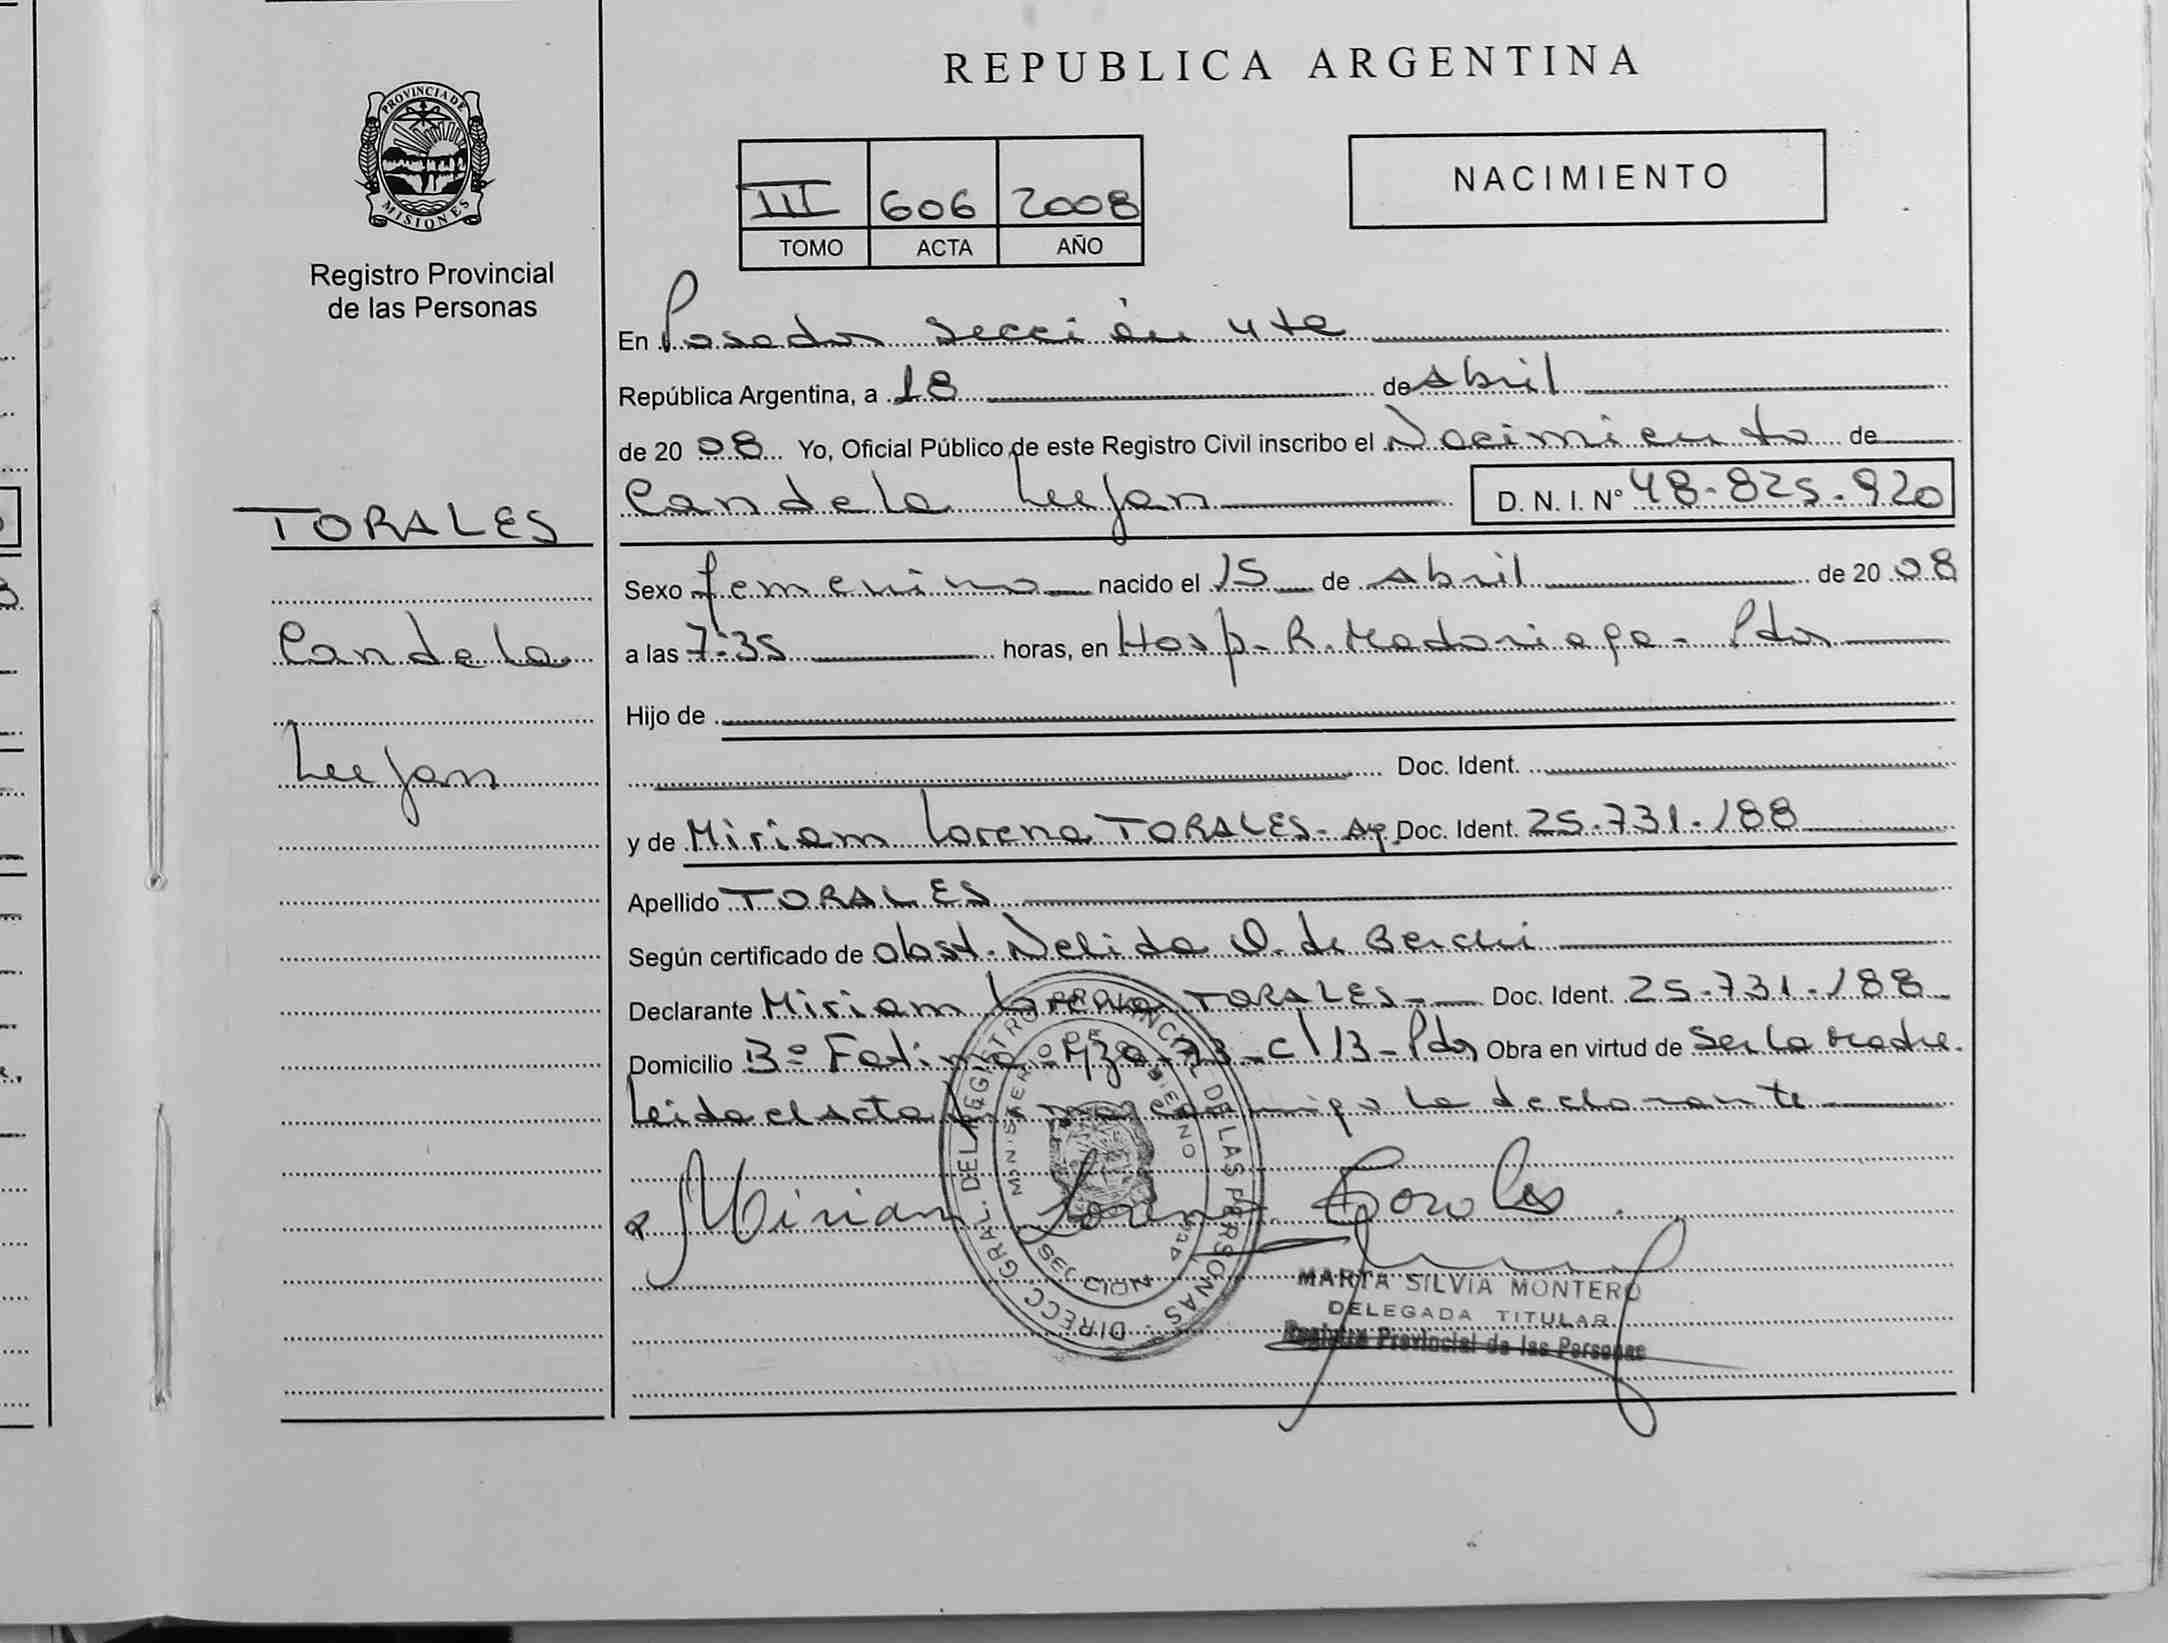 REPUBLICA ARGENTINA
PROVINCIA DE
MISIONES
Registro Provincial
de las Personas
III 606 2008
TOMO ACTA AÑO
NACIMIENTO
En Posadas sección 4ta
República Argentina, a 18 de Abril
de 2008 Yo, Oficial Público de este Registro Civil inscribo el Nacimiento de
Candela Lujan D. N. I. Nº 48-825-920
TORALES
Candela
Lujan
Sexo femenino nacido el 15 de Abril de 2008
a las 7:35 horas, en Hosp. R. Madariaga - Pdas
Hijo de
Doc. Ident.
y de Miriam Lorena TORALES - Doc. Ident. 25.731.188
Apellido TORALES
Según certificado de obst. Nelida O. de
Declarante Miriam Lorena TORALES - Doc. Ident. 25-731-188
Domicilio Bº Fatima - Mza - 73 - c/13 - Pdas Obra en virtud de Ser la Madre.
Leida el acta conmigo la declarante
Miriam Lorena Torales
DIRECC. GRAL. DEL REGISTRO PROVINCIAL DE LAS PERSONAS
MINISTERIO DE GOBIERNO
SECCION 4ta
MARTA SILVIA MONTERO
DELEGADA TITULAR
Registro Provincial de las Personas